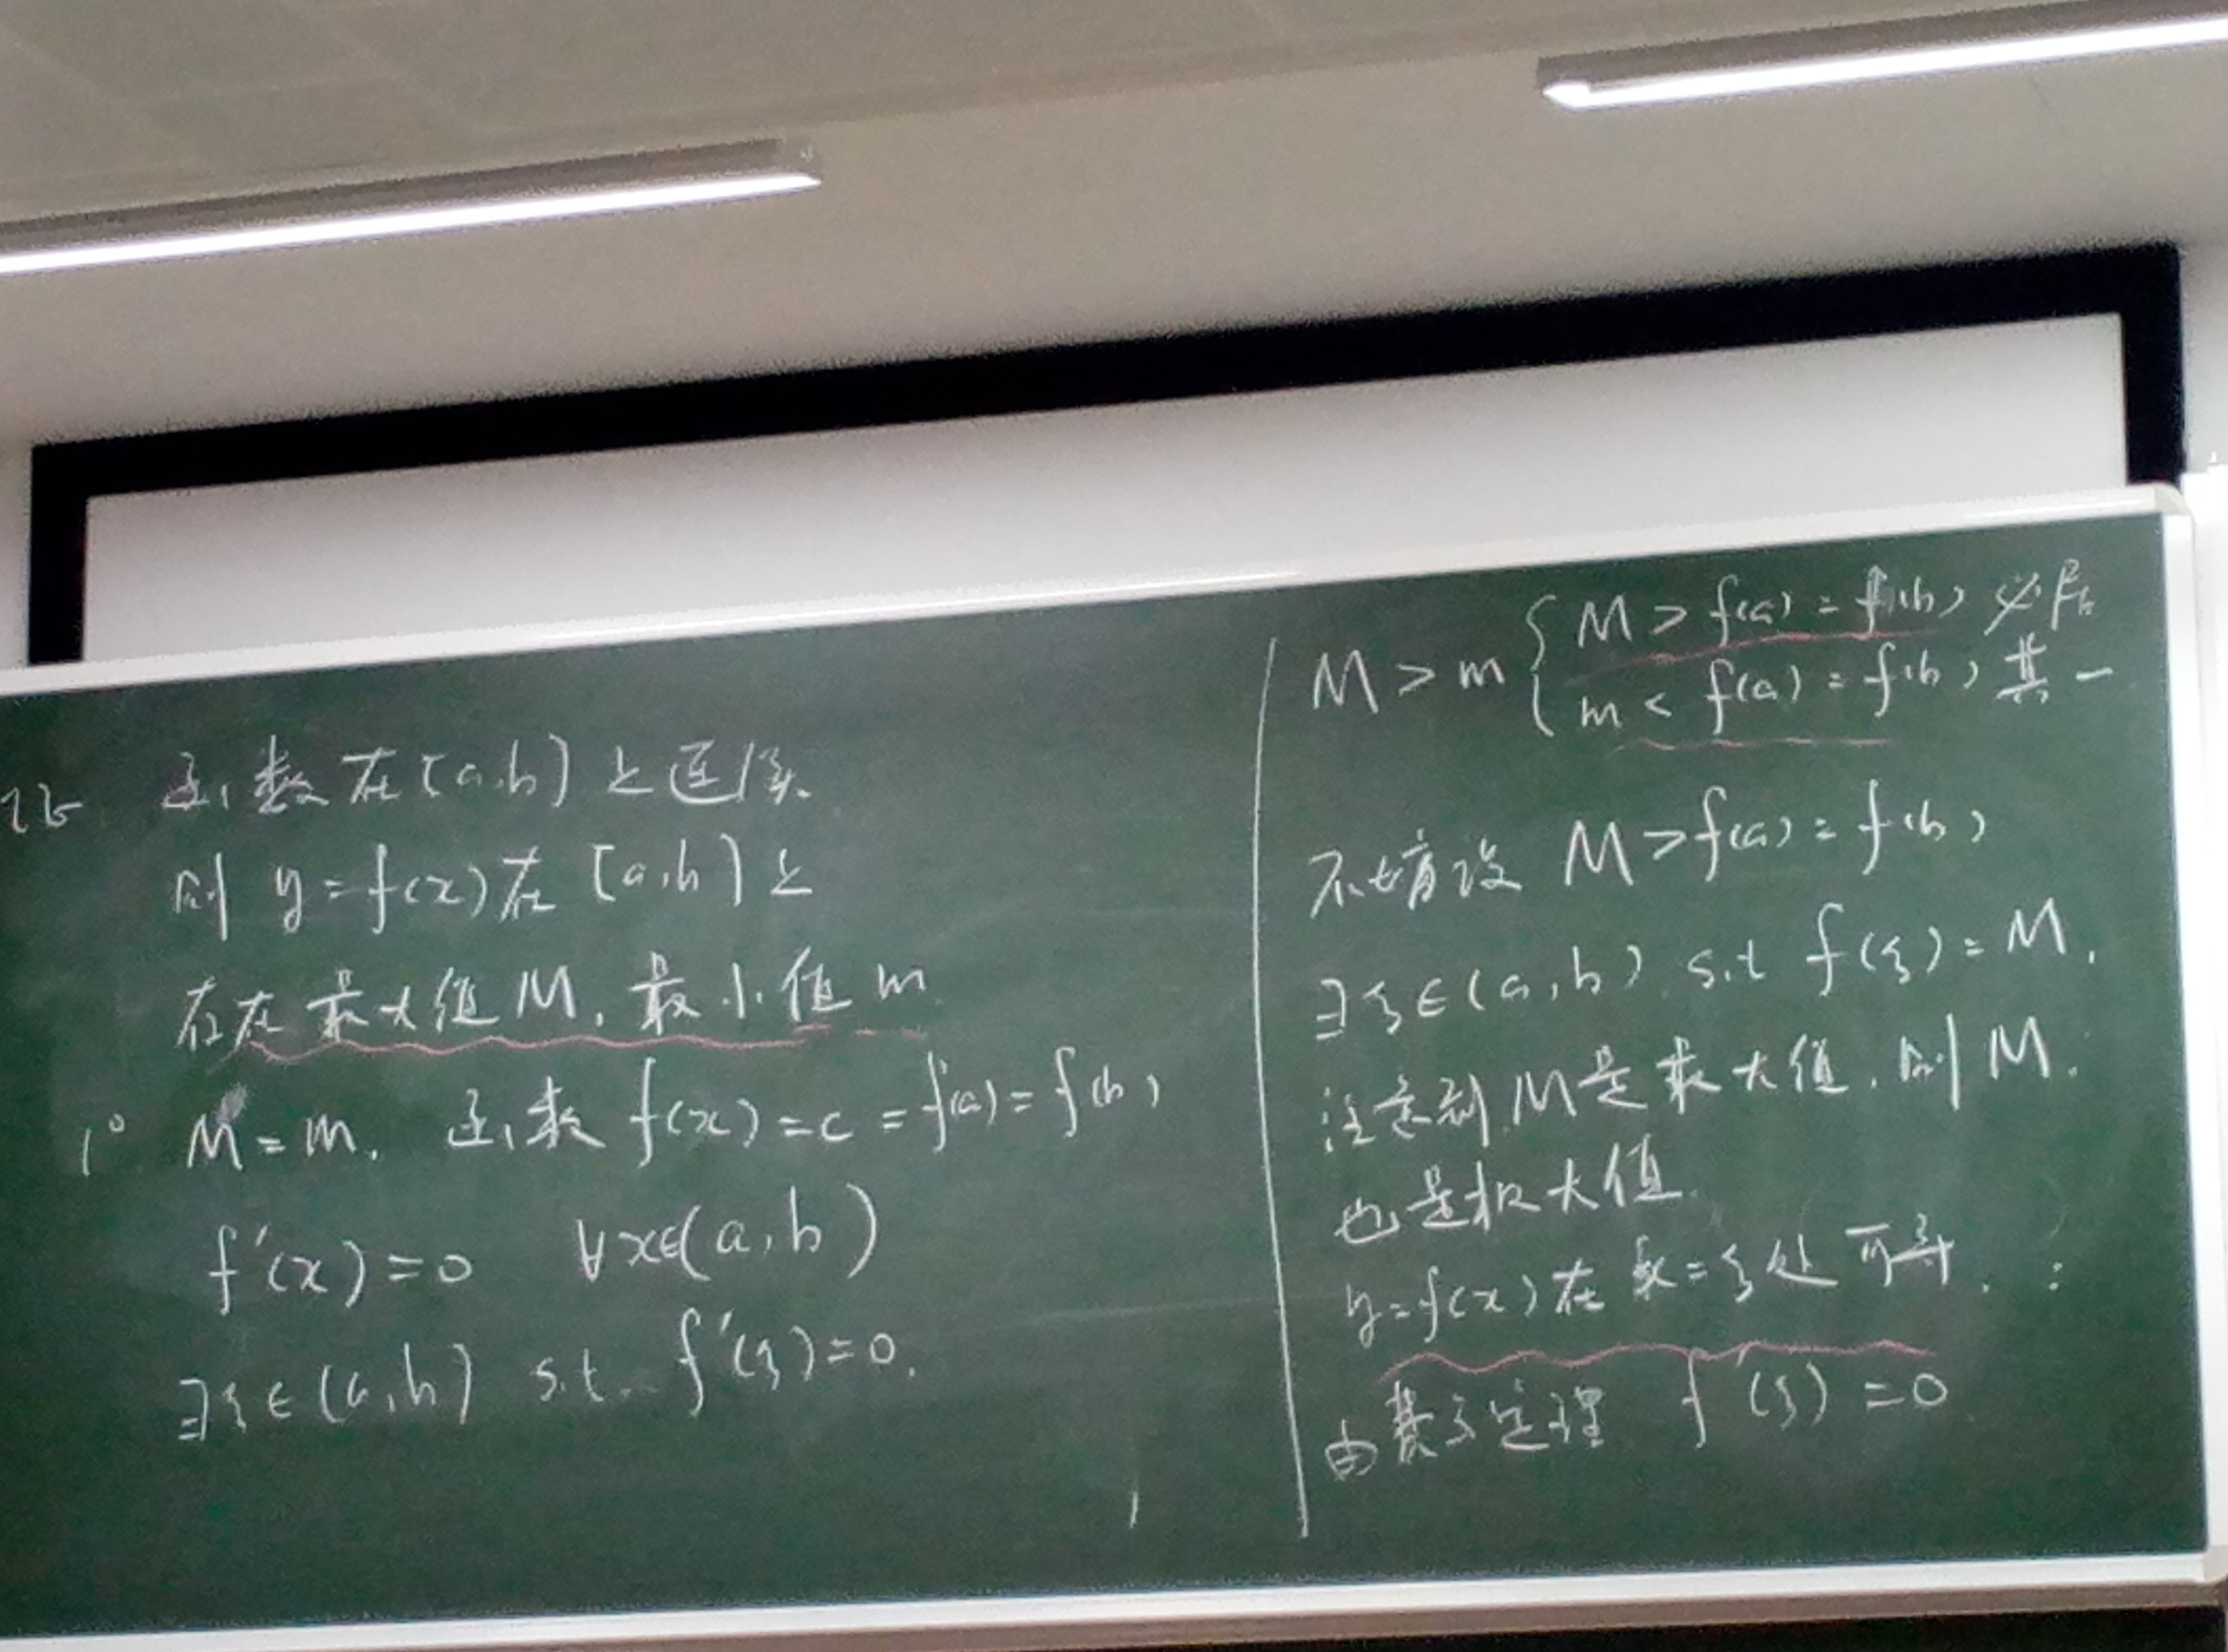 证 函数在[a,b]上连续.
则 y=f(x)在[a,b]上
存在最大值M,最小值m
1° M=m. 函数 f(x)=c=f(a)=f(b)
f'(x)=0 ∀x∈(a,b)
∃ξ∈(a,b) s.t. f'(ξ)=0.
M>m { M>f(a)=f(b) 必有
m<f(a)=f(b) 其一
不妨设 M>f(a)=f(b)
∃ξ∈(a,b) s.t f(ξ)=M.
注意到M是最大值.则M.
也是极大值.
y=f(x)在x=ξ处可导.
由费马定理 f'(ξ)=0